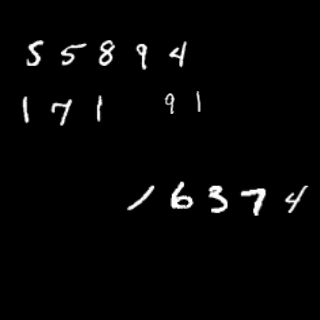 55894
171 91
16374